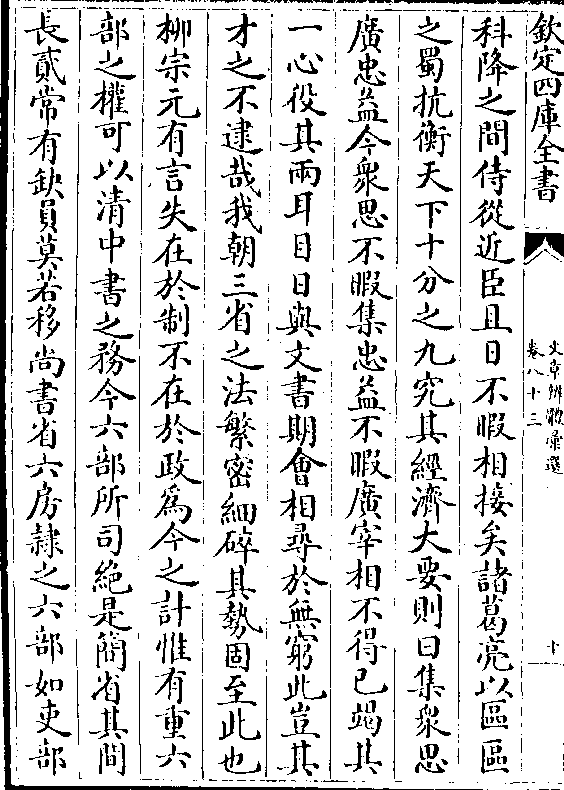 欽定四庫全書
文章辨體彙選
卷八十三
十
科降之間侍從近臣且日不暇相接矣諸葛亮以區區
之蜀抗衡天下十分之九究其經濟大要則曰集衆思
廣忠益今衆思不暇集忠益不暇廣宰相不得已竭其
一心役其兩耳目日與文書期會相尋於無窮此豈其
才之不逮哉我朝三省之法繁密細碎其勢固至此也
栁宗元有言失在於制不在於政為今之計惟有重六
部之權可以清中書之務今六部所司絶是簡省其間
長貳常有缺員莫若移尚書省六房隷之六部如吏部